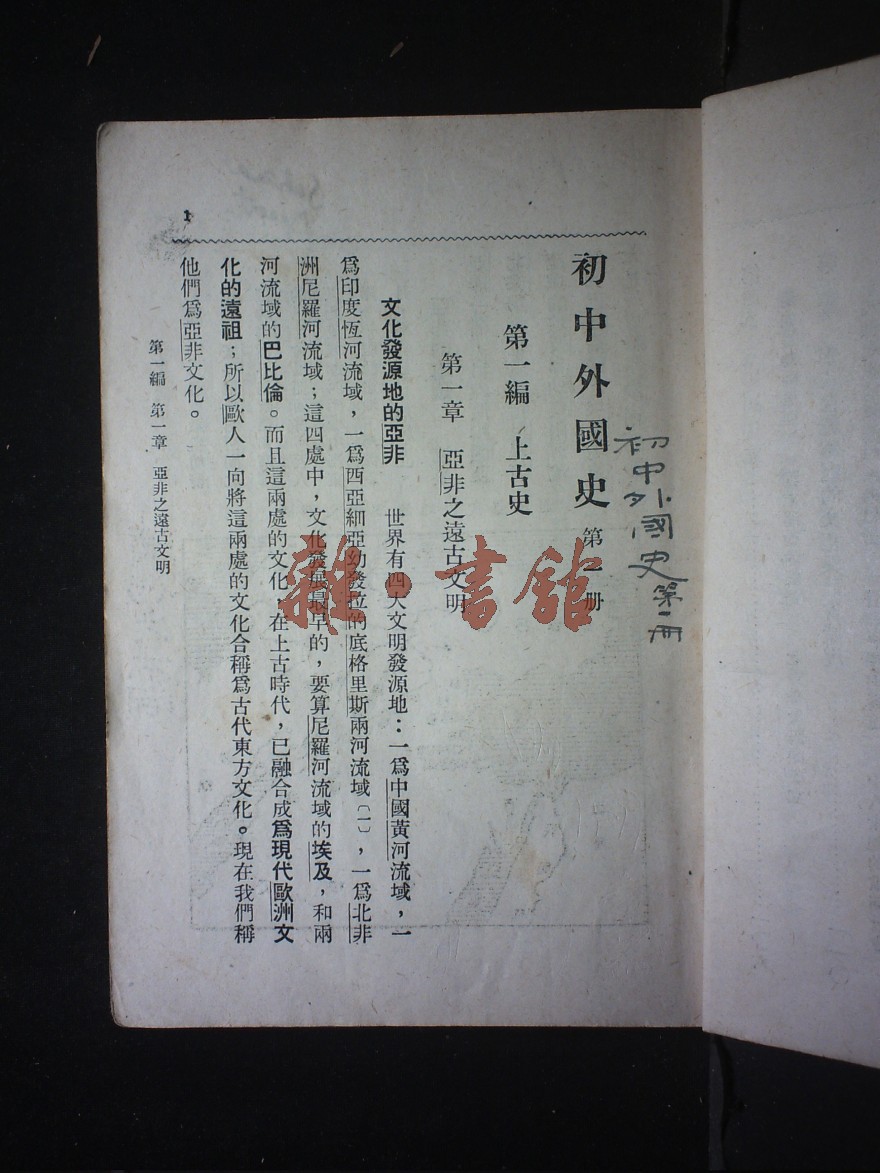 初中外國史第一册
初中外國史 第一册
第一編 上古史
第一章 亞非之遠古文明
文化發源地的亞非 世界有四大文明發源地：一爲中國黃河流域，一
爲印度恆河流域，一爲西亞細亞幼發拉的底格里斯兩河流域〔一〕，一爲北非
洲尼羅河流域；這四處中，文化發展最早的，要算尼羅河流域的埃及，和兩
河流域的巴比倫。而且這兩處的文化，在上古時代，已融合成爲現代歐洲文
化的遠祖；所以歐人一向將這兩處的文化合稱爲古代東方文化。現在我們稱
他們爲亞非文化。
第一編 第一章 亞非之遠古文明
1
雜·書館